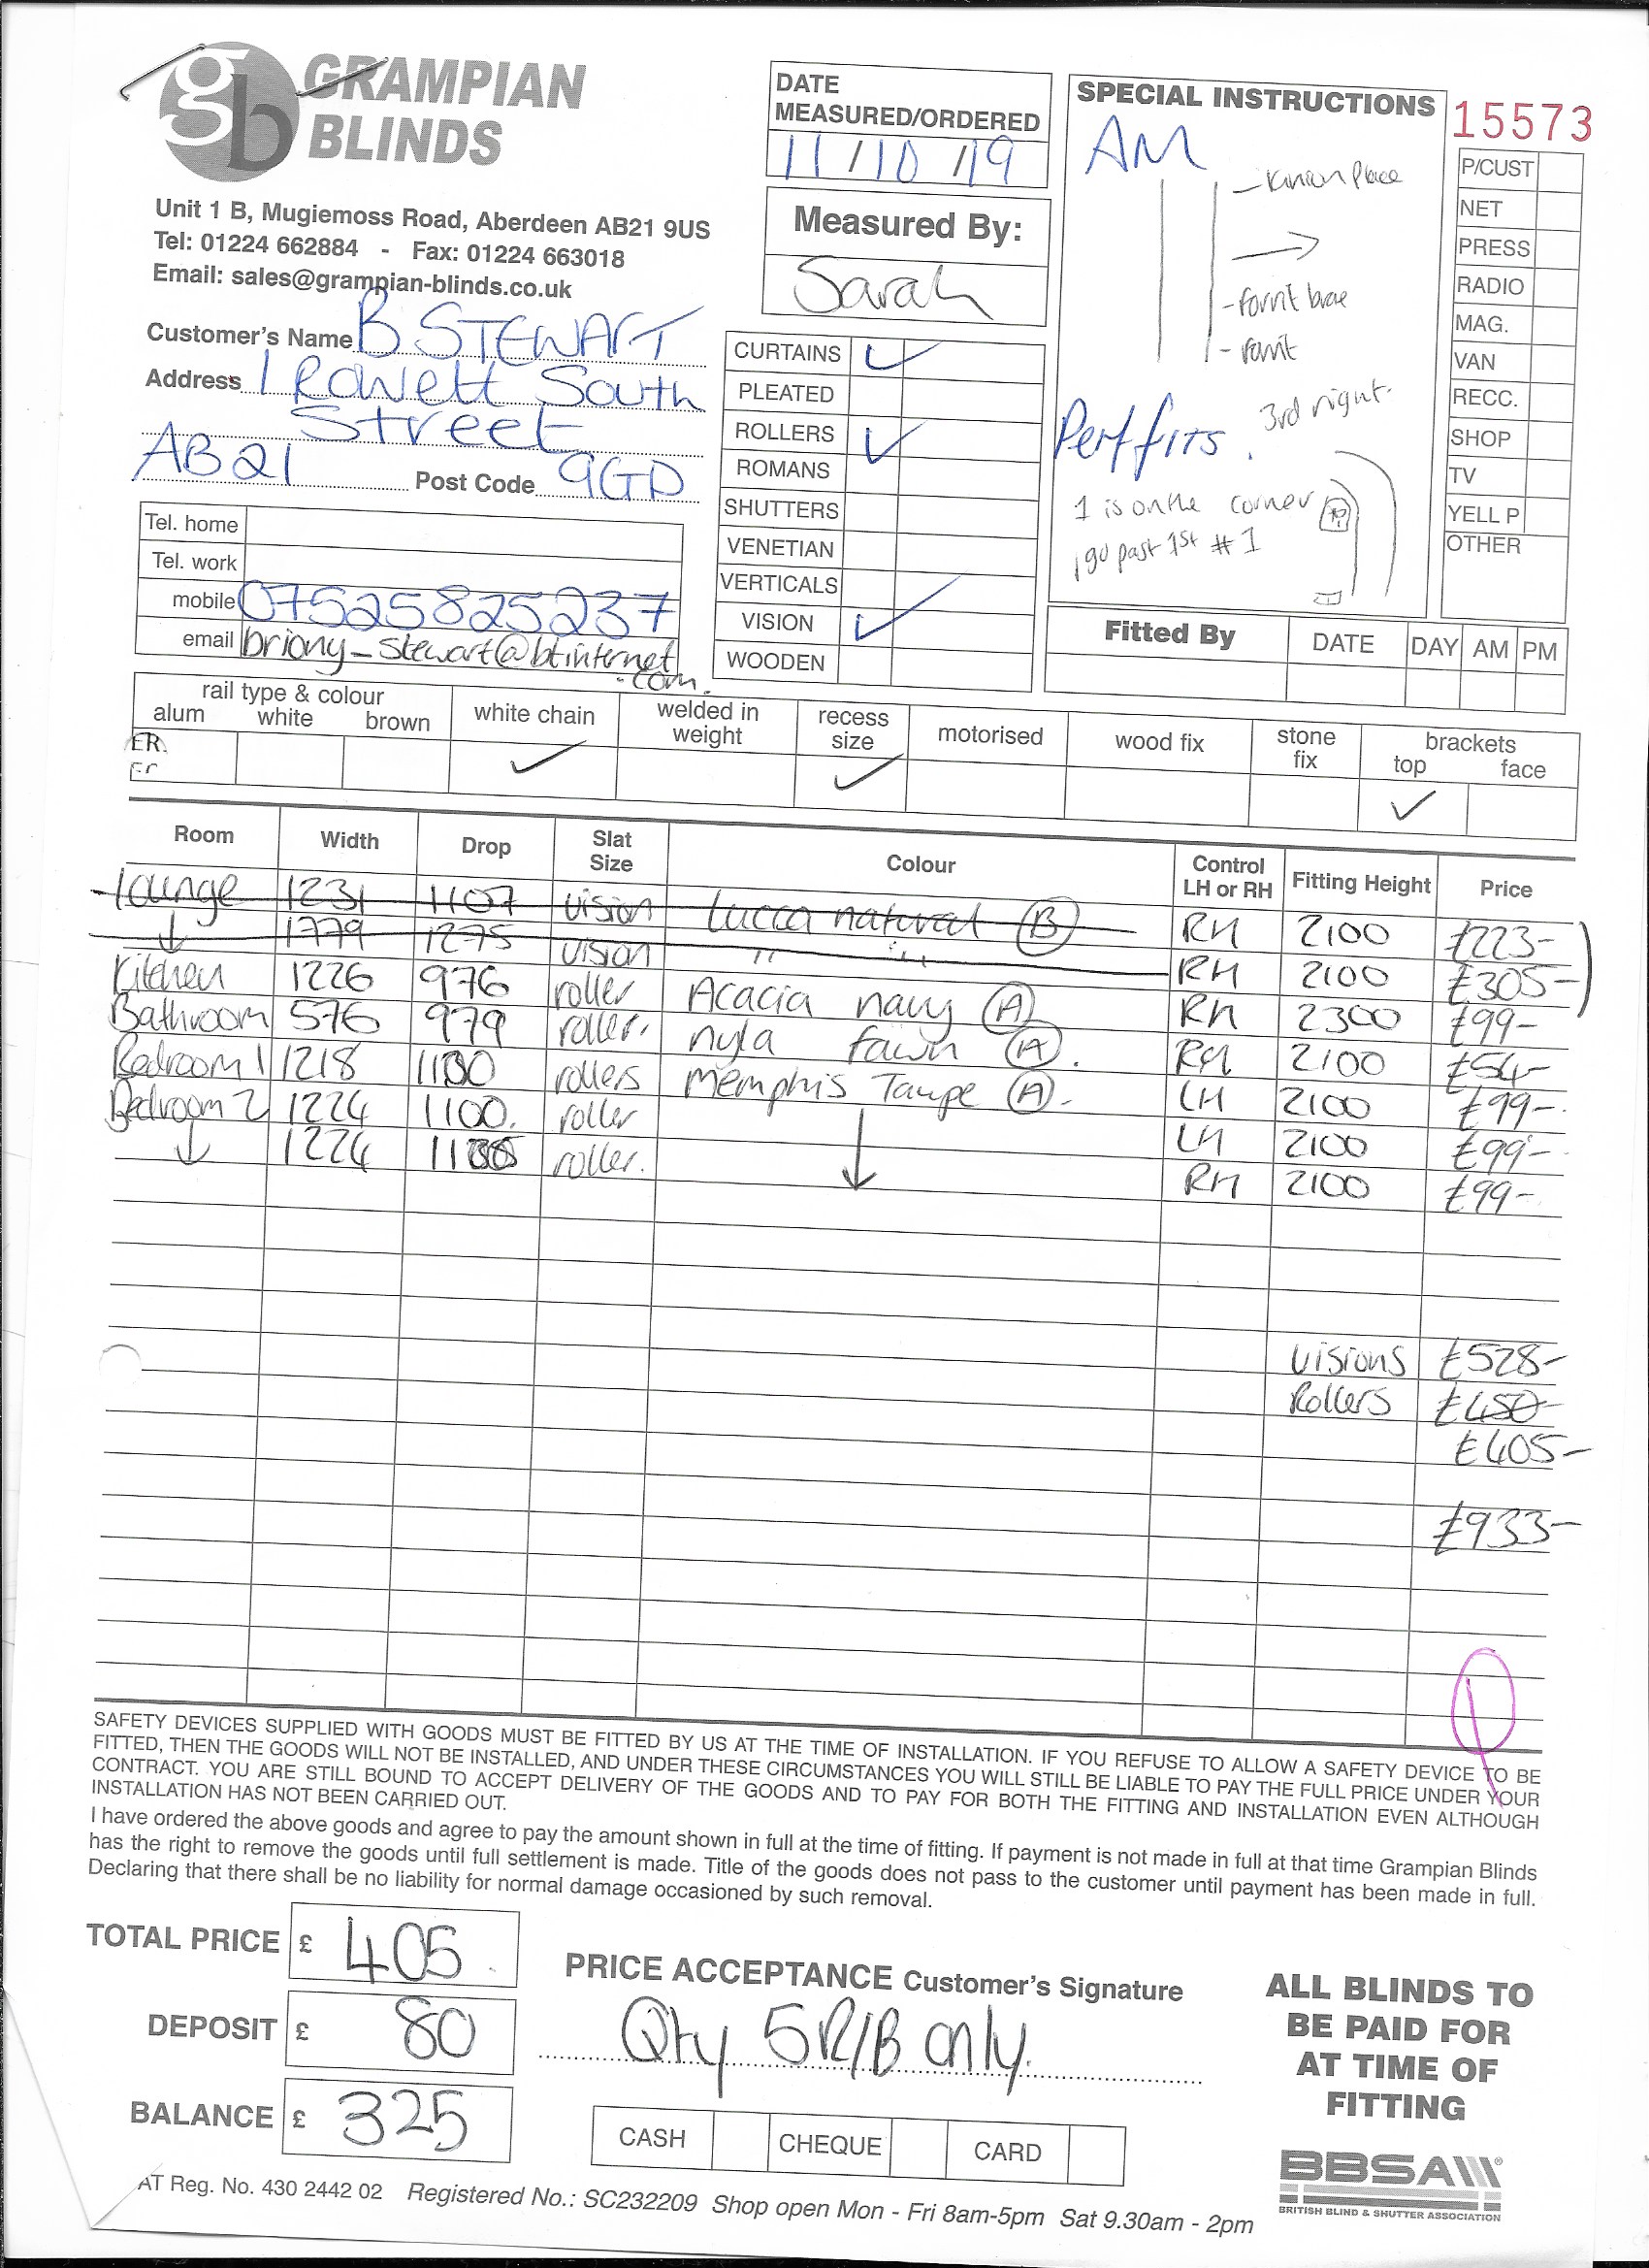 gb GRAMPIAN
BLINDS
Unit 1 B, Mugiemoss Road, Aberdeen AB21 9US
Tel: 01224 662884 - Fax: 01224 663018
Email: sales@grampian-blinds.co.uk
Customer's Name B STEWART
Address 1 Rowett South
Street
AB21 Post Code 9GD
Tel. home
Tel. work
mobile 07525825237
email briony_stewart@btinternet
.com.
DATE
MEASURED/ORDERED
11/10/19
Measured By:
Sarah
CURTAINS ✓
PLEATED
ROLLERS ✓
ROMANS
SHUTTERS
VENETIAN
VERTICALS
VISION ✓
WOODEN
SPECIAL INSTRUCTIONS
AM
Perf fits.
3rd right.
1 is on the corner
go past 1st # 1
15573
P/CUST
NET
PRESS
RADIO
MAG.
VAN
RECC.
SHOP
TV
YELL P
OTHER
Fitted By DATE DAY AM PM
rail type & colour
alum white brown white chain welded in weight recess size motorised wood fix stone fix brackets top face
ER. ✓ ✓ ✓
Room Width Drop Slat Size Colour Control LH or RH Fitting Height Price
lounge 1231 1107 vision Lucca natural (B) RH 2100 £223-
↓ 1779 1275 vision " " RH 2100 £305-
Kitchen 1226 976 roller Acacia navy (A) RH 2300 £99-
Bathroom 576 979 roller. nyla fawn (A). RH 2100 £54-
Bedroom 1 1218 1100 rollers Memphis Taupe (A)- LH 2100 £99-
Bedroom 2 1224 1100. roller LH 2100 £99-
↓ 1224 roller. ↓ RH 2100 £99-
Visions £528-
Rollers £450-
£405-
£933-
SAFETY DEVICES SUPPLIED WITH GOODS MUST BE FITTED BY US AT THE TIME OF INSTALLATION. IF YOU REFUSE TO ALLOW A SAFETY DEVICE TO BE
FITTED, THEN THE GOODS WILL NOT BE INSTALLED, AND UNDER THESE CIRCUMSTANCES YOU WILL STILL BE LIABLE TO PAY THE FULL PRICE UNDER YOUR
CONTRACT. YOU ARE STILL BOUND TO ACCEPT DELIVERY OF THE GOODS AND TO PAY FOR BOTH THE FITTING AND INSTALLATION EVEN ALTHOUGH
INSTALLATION HAS NOT BEEN CARRIED OUT.
I have ordered the above goods and agree to pay the amount shown in full at the time of fitting. If payment is not made in full at that time Grampian Blinds
has the right to remove the goods until full settlement is made. Title of the goods does not pass to the customer until payment has been made in full.
Declaring that there shall be no liability for normal damage occasioned by such removal.
TOTAL PRICE £ 405.
DEPOSIT £ 80
BALANCE £ 325
PRICE ACCEPTANCE Customer's Signature
Qty 5 R/B only.
CASH CHEQUE CARD
ALL BLINDS TO
BE PAID FOR
AT TIME OF
FITTING
BBSA
BRITISH BLIND & SHUTTER ASSOCIATION
AT Reg. No. 430 2442 02 Registered No.: SC232209 Shop open Mon - Fri 8am-5pm Sat 9.30am - 2pm